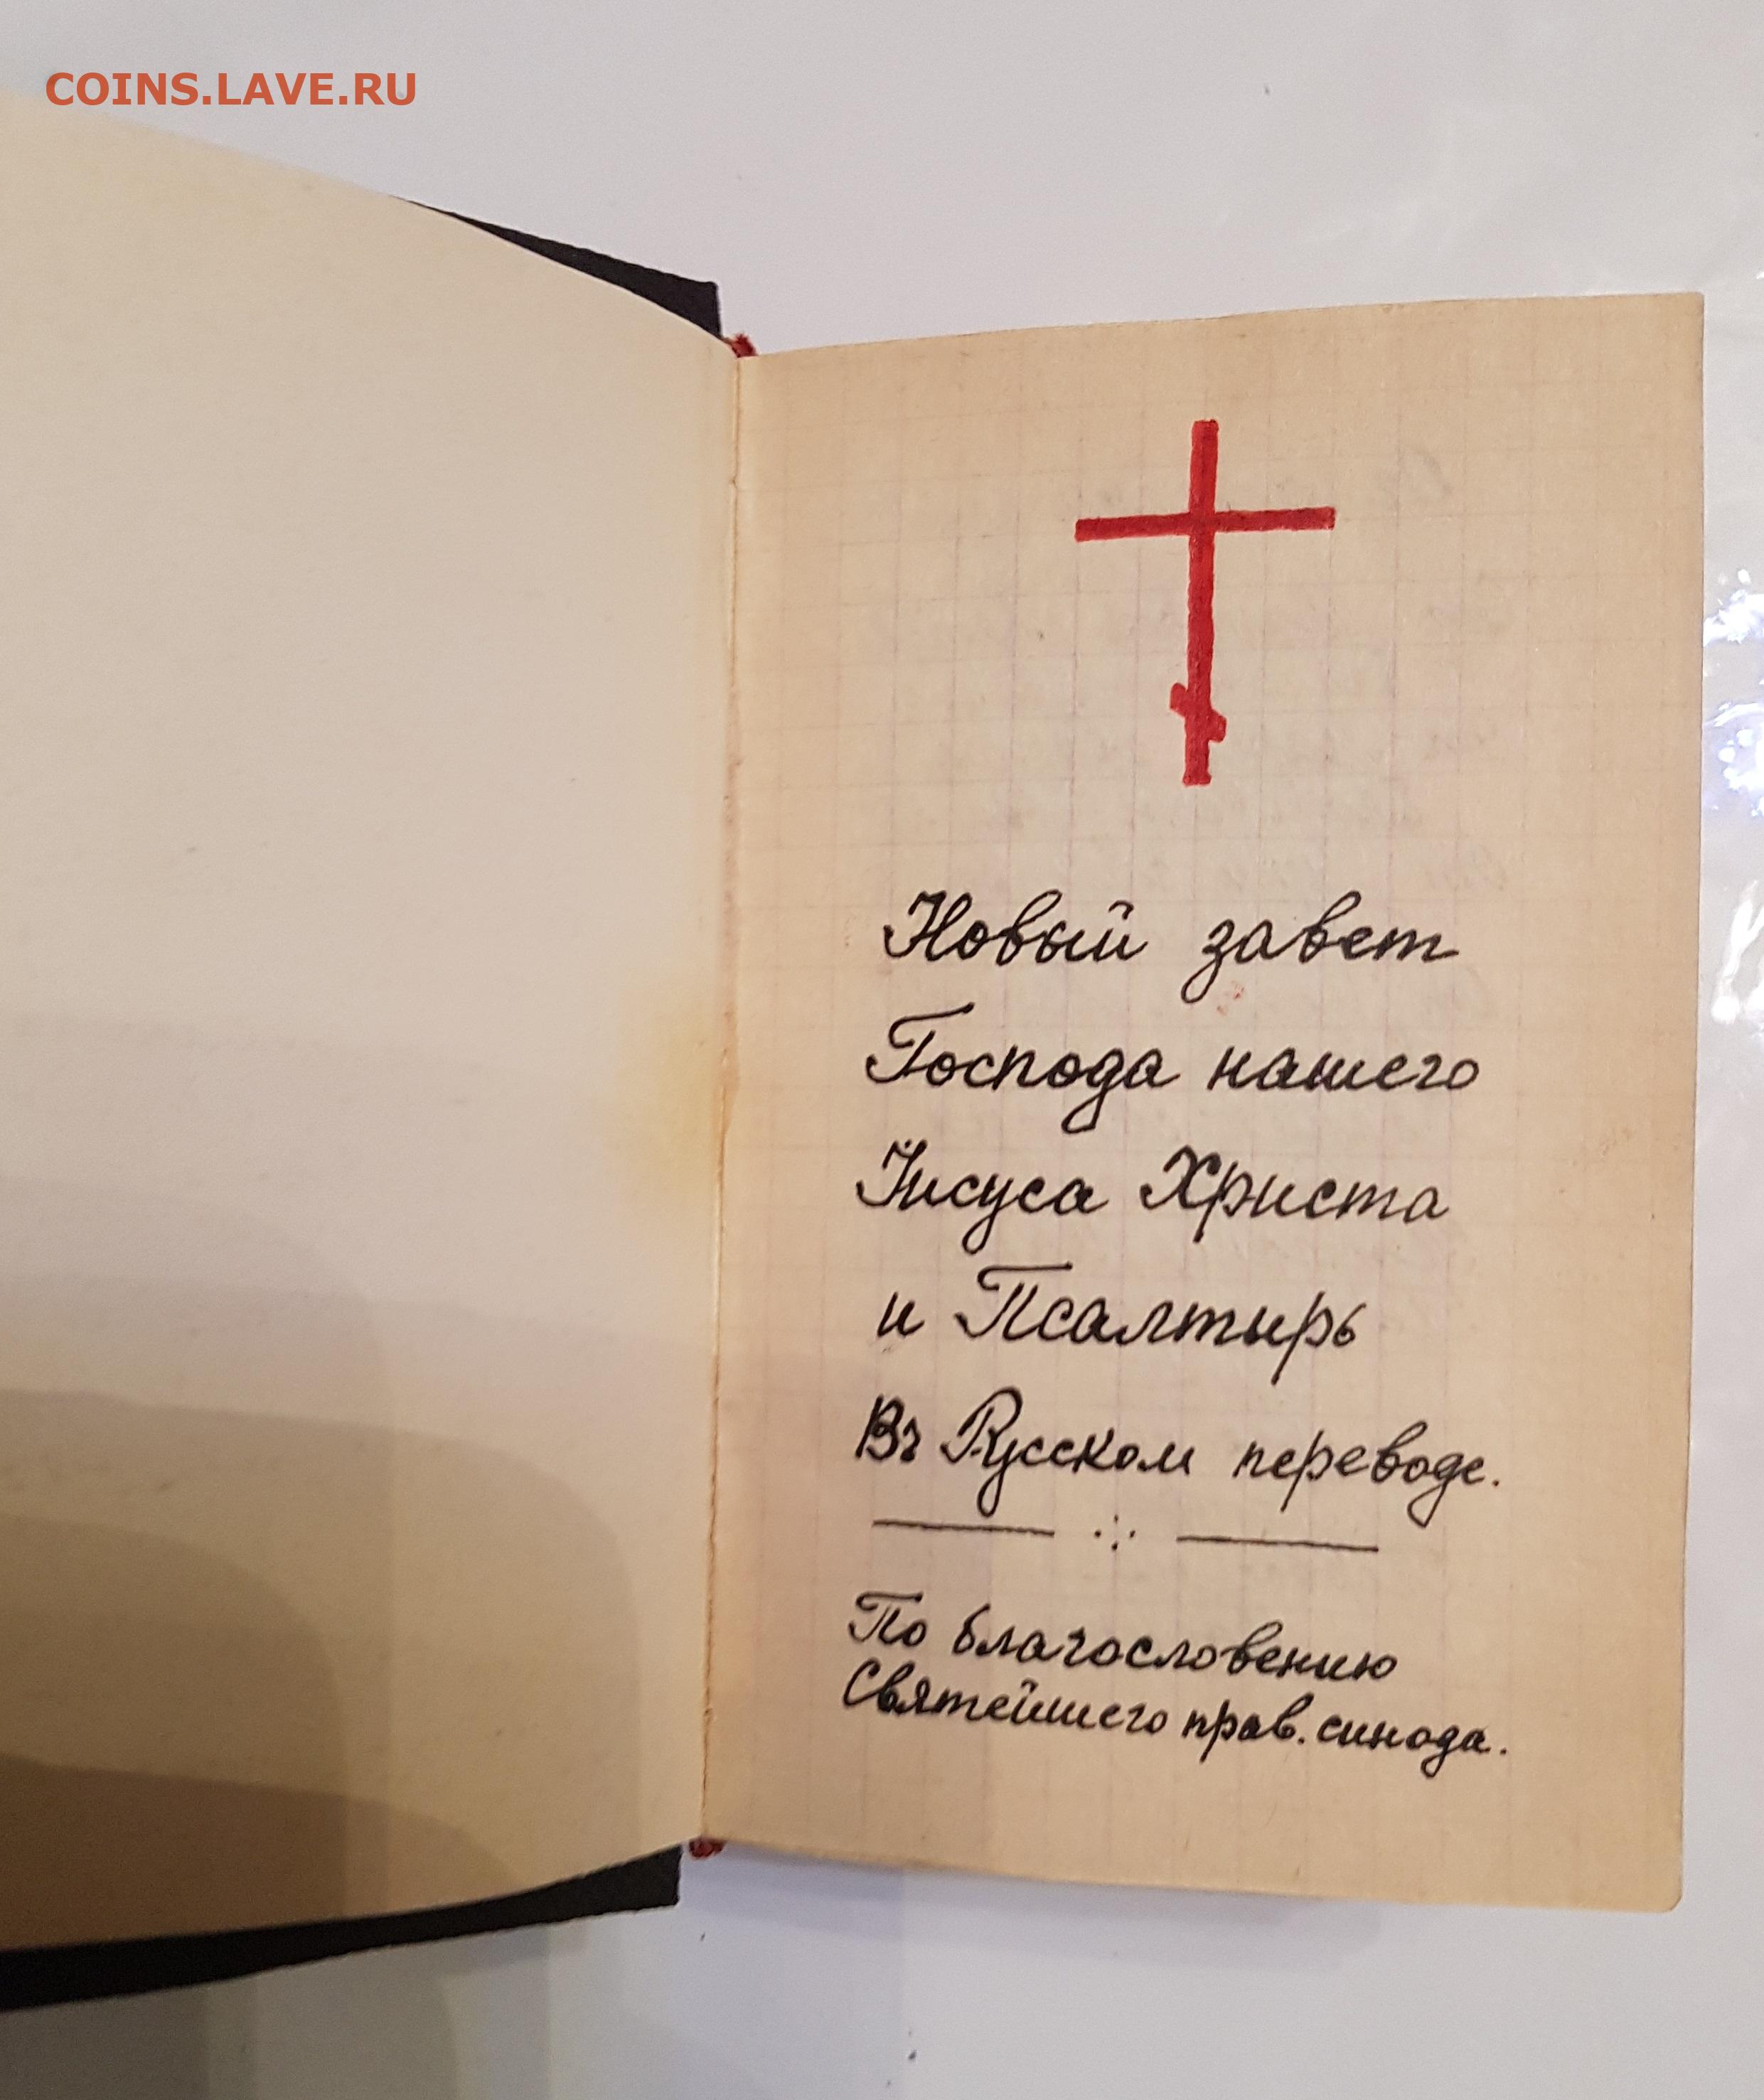 COINS.LAVE.RU
Новый завет
Господа нашего
Іисуса Христа
и Псалтырь
Въ Русском переводе.
По благословению
Святейшего прав. синода.